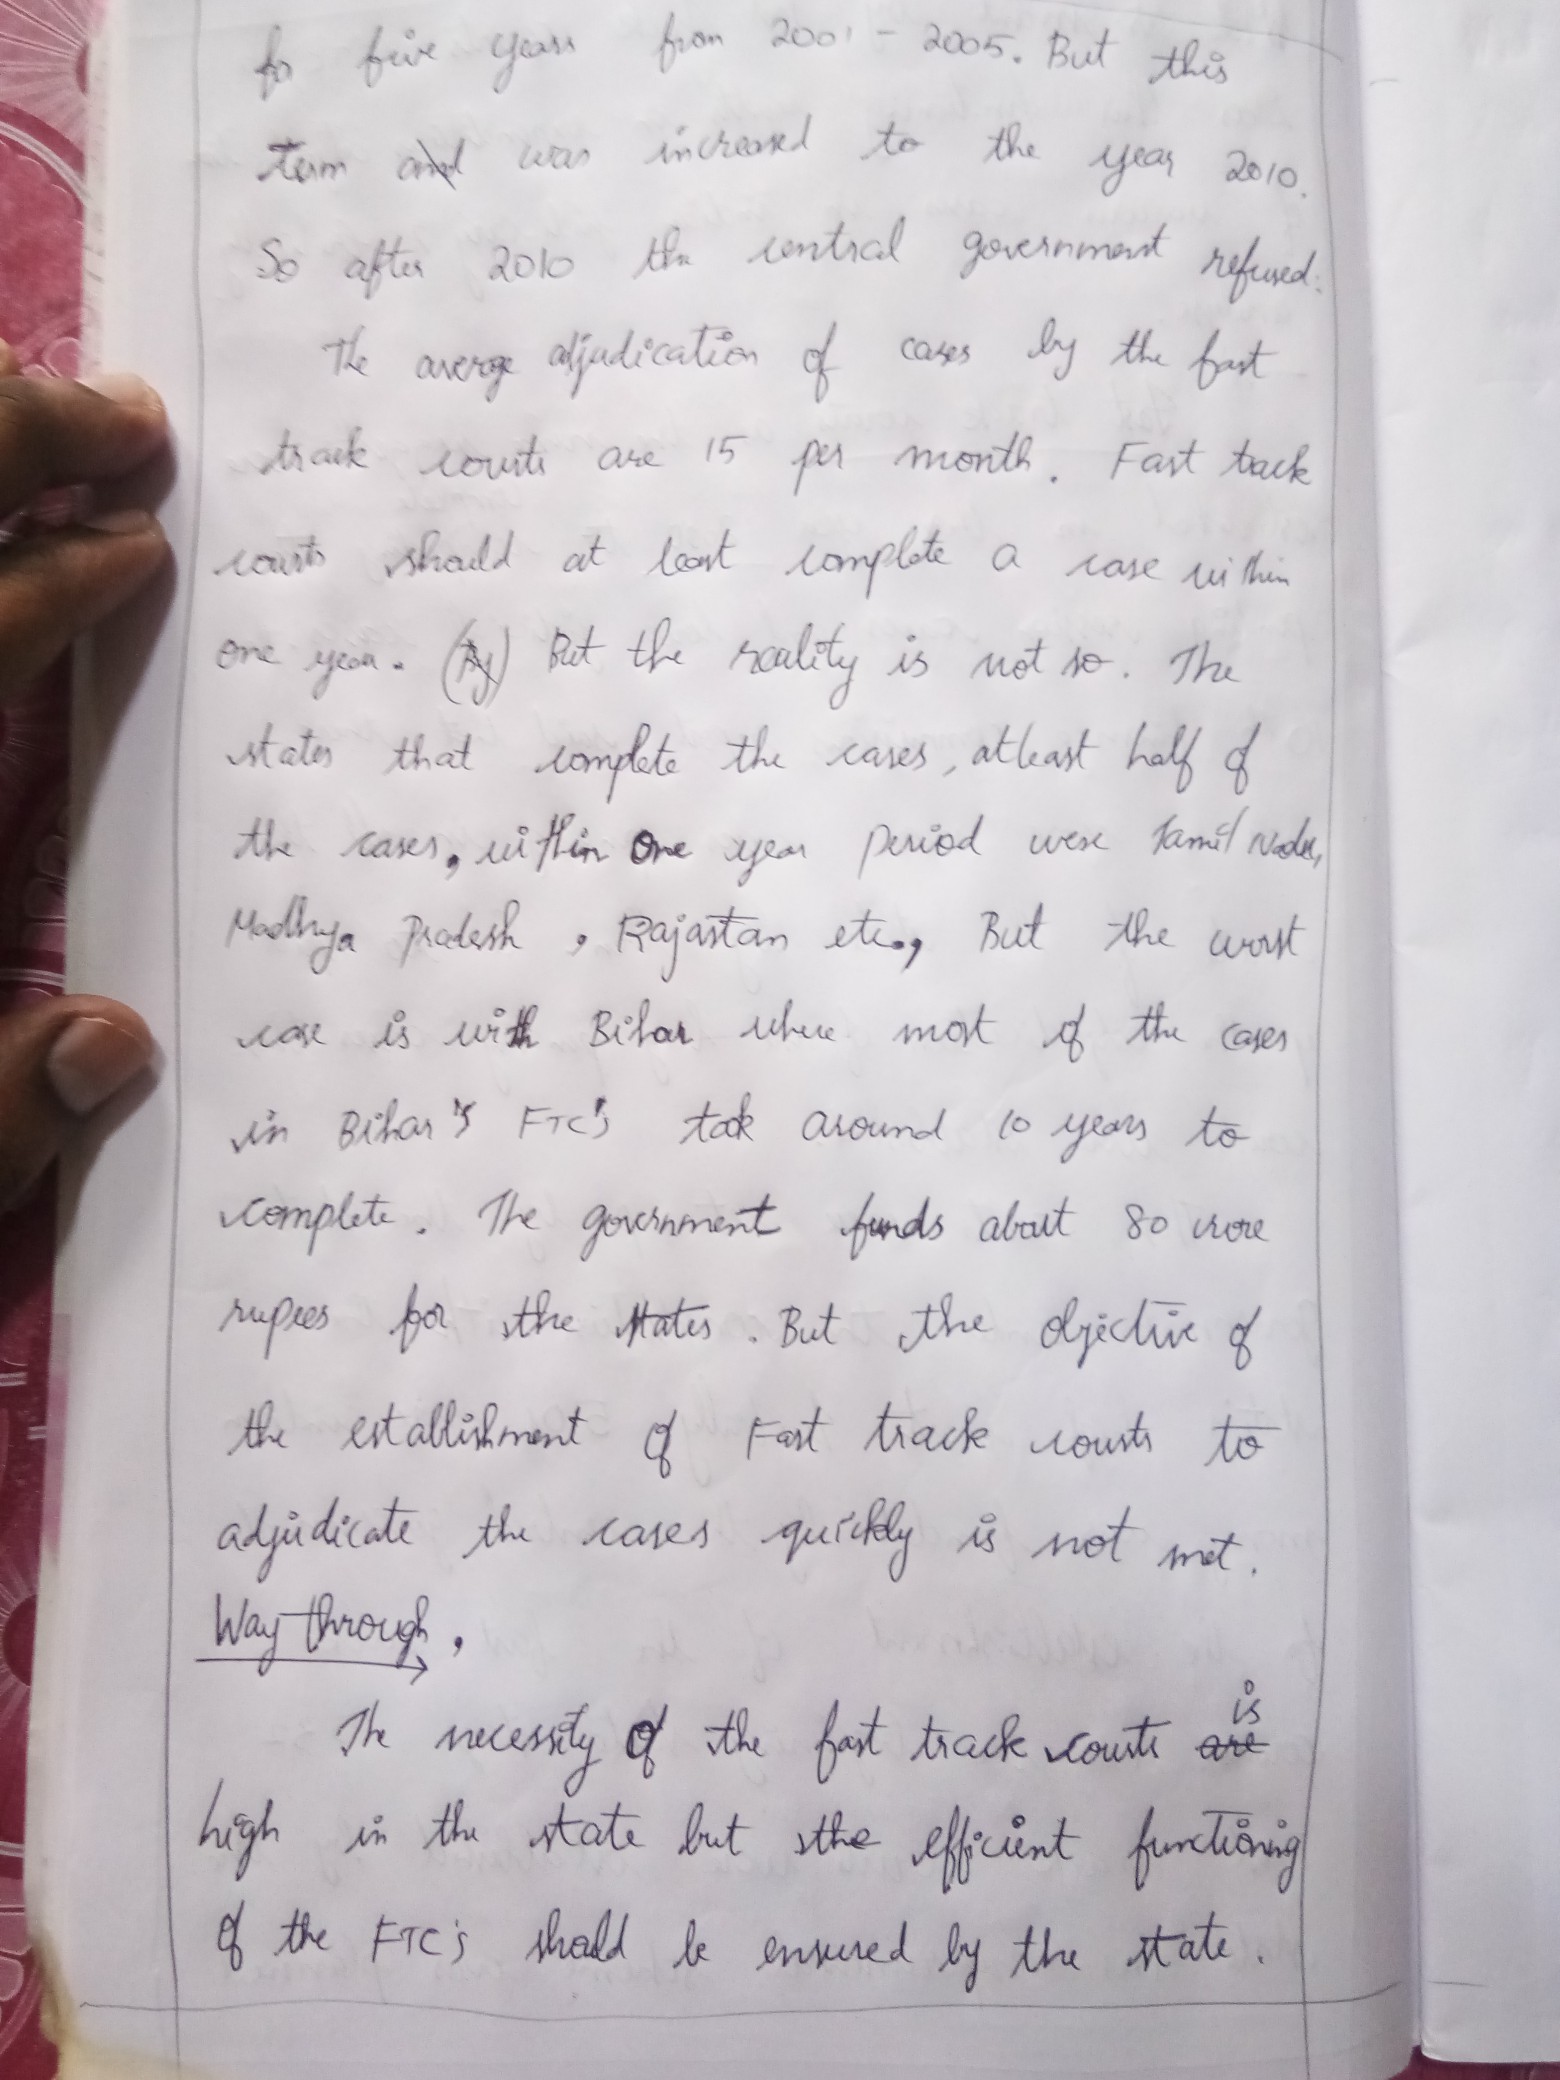 for five years from 2001 - 2005. But this
term was increased to the year 2010.
So after 2010 the central government refused.
The average adjudication of cases by the fast
track courts are 15 per month. Fast tack
courts should at least complete a case within
one year. But the reality is not so. The
states that complete the cases, atleast half of
the cases, within one year period were Tamil Nadu,
Madhya Pradesh, Rajastan etc., But the worst
case is with Bihar where most of the cases
in Bihar's FTC's took around 10 years to
complete. The government funds about 80 crore
rupees for the states. But the objective of
the establishment of Fast track courts to
adjudicate the cases quickly is not met.
Way through,
The necessity of the fast track courts is
high in the state but the efficient functioning
of the FTC's should be ensured by the state.